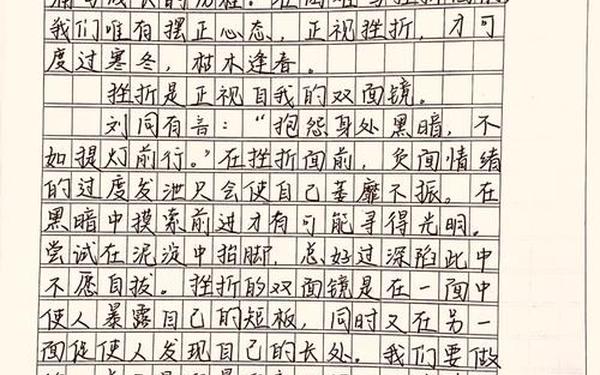 我们唯有摆正心态，正视挫折，才可
度过寒冬，树木逢春。
挫折是正视自我的双面镜。
刘同有言：“抱怨身处黑暗，不
如提灯前行。”在挫折面前，负面情绪
的过度发泄只会使自己萎靡不振。在
黑暗中摸索前进才有可能寻得光明。
尝试在泥淀中抬脚，总好过深陷此中
不愿自拔。挫折的双面镜是在一面中
使人暴露自己的短板，同时又在另一
面促使人发现自己的长处。我们要做